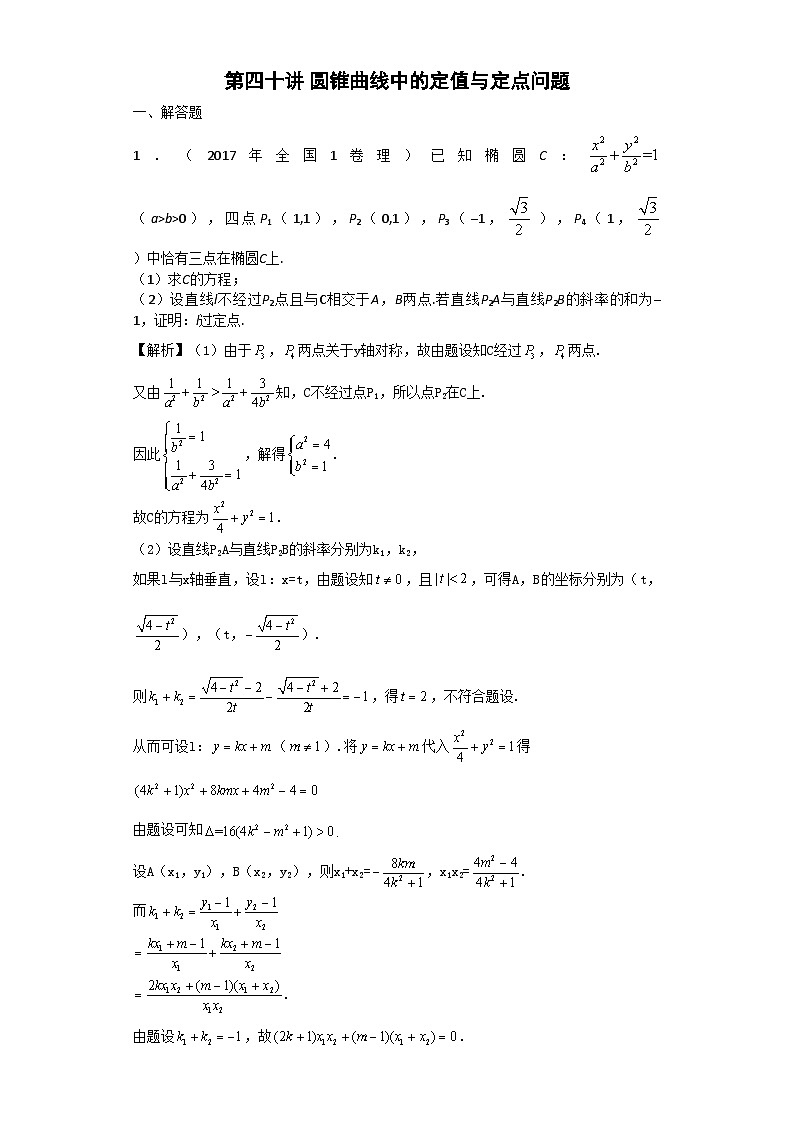 第四十讲 圆锥曲线中的定值与定点问题
一、解答题
1．（2017年全国1卷理）已知椭圆C：$\frac{x^2}{a^2}+\frac{y^2}{b^2}=1$
（a>b>0），四点P₁（1,1），P₂（0,1），P₃（–1，$\frac{\sqrt{3}}{2}$），P₄（1，$\frac{\sqrt{3}}{2}$
）中恰有三点在椭圆C上.
（1）求C的方程；
（2）设直线l不经过P₂点且与C相交于A，B两点.若直线P₂A与直线P₂B的斜率的和为–
1，证明：l过定点.
【解析】（1）由于$P_3$，$P_4$两点关于y轴对称，故由题设知C经过$P_3$，$P_4$两点．
又由$\frac{1}{a^2}+\frac{1}{b^2}>\frac{1}{a^2}+\frac{3}{4b^2}$知，C不经过点P₁，所以点P₂在C上．
因此$\begin{cases}\frac{1}{b^2}=1\\\frac{1}{a^2}+\frac{3}{4b^2}=1\end{cases}$，解得$\begin{cases}a^2=4\\b^2=1\end{cases}$．
故C的方程为$\frac{x^2}{4}+y^2=1$．
（2）设直线P₂A与直线P₂B的斜率分别为k₁，k₂，
如果l与x轴垂直，设l：x=t，由题设知$t\neq 0$，且$|t|<2$，可得A，B的坐标分别为（t，
$\frac{\sqrt{4-t^2}}{2}$），（t，$-\frac{\sqrt{4-t^2}}{2}$）．
则$k_1+k_2=\frac{\sqrt{4-t^2}-2}{2t}-\frac{\sqrt{4-t^2}+2}{2t}=-1$，得$t=2$，不符合题设．
从而可设l：$y=kx+m$（$m\neq 1$）．将$y=kx+m$代入$\frac{x^2}{4}+y^2=1$得
$(4k^2+1)x^2+8kmx+4m^2-4=0$
由题设可知$\Delta=16(4k^2-m^2+1)>0$．
设A（x₁，y₁），B（x₂，y₂），则x₁+x₂=$-\frac{8km}{4k^2+1}$，x₁x₂=$\frac{4m^2-4}{4k^2+1}$．
而$k_1+k_2=\frac{y_1-1}{x_1}+\frac{y_2-1}{x_2}$
$=\frac{kx_1+m-1}{x_1}+\frac{kx_2+m-1}{x_2}$
$=\frac{2kx_1x_2+(m-1)(x_1+x_2)}{x_1x_2}$．
由题设$k_1+k_2=-1$，故$(2k+1)x_1x_2+(m-1)(x_1+x_2)=0$．